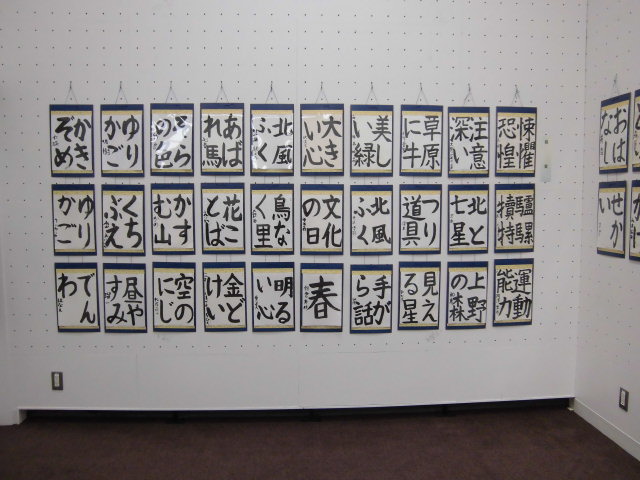 かき
ぞめ
ゆり
かご
そら
の色
あば
れ馬
北風
ふく
大き
い心
美し
い緑
草原
に牛
注意
深い
悚懼
恐惶
おは
なし
ゆり
かご
くち
ぶえ
かす
む山
花こ
とば
鳥な
く里
文化
の日
北風
ふく
つり
道具
北と
七星
犢特
せか
い
でん
わ
昼や
すみ
空の
にじ
金ど
けい
明る
い心
春
手が
ら話
見え
る星
上野
の森
運動
能力